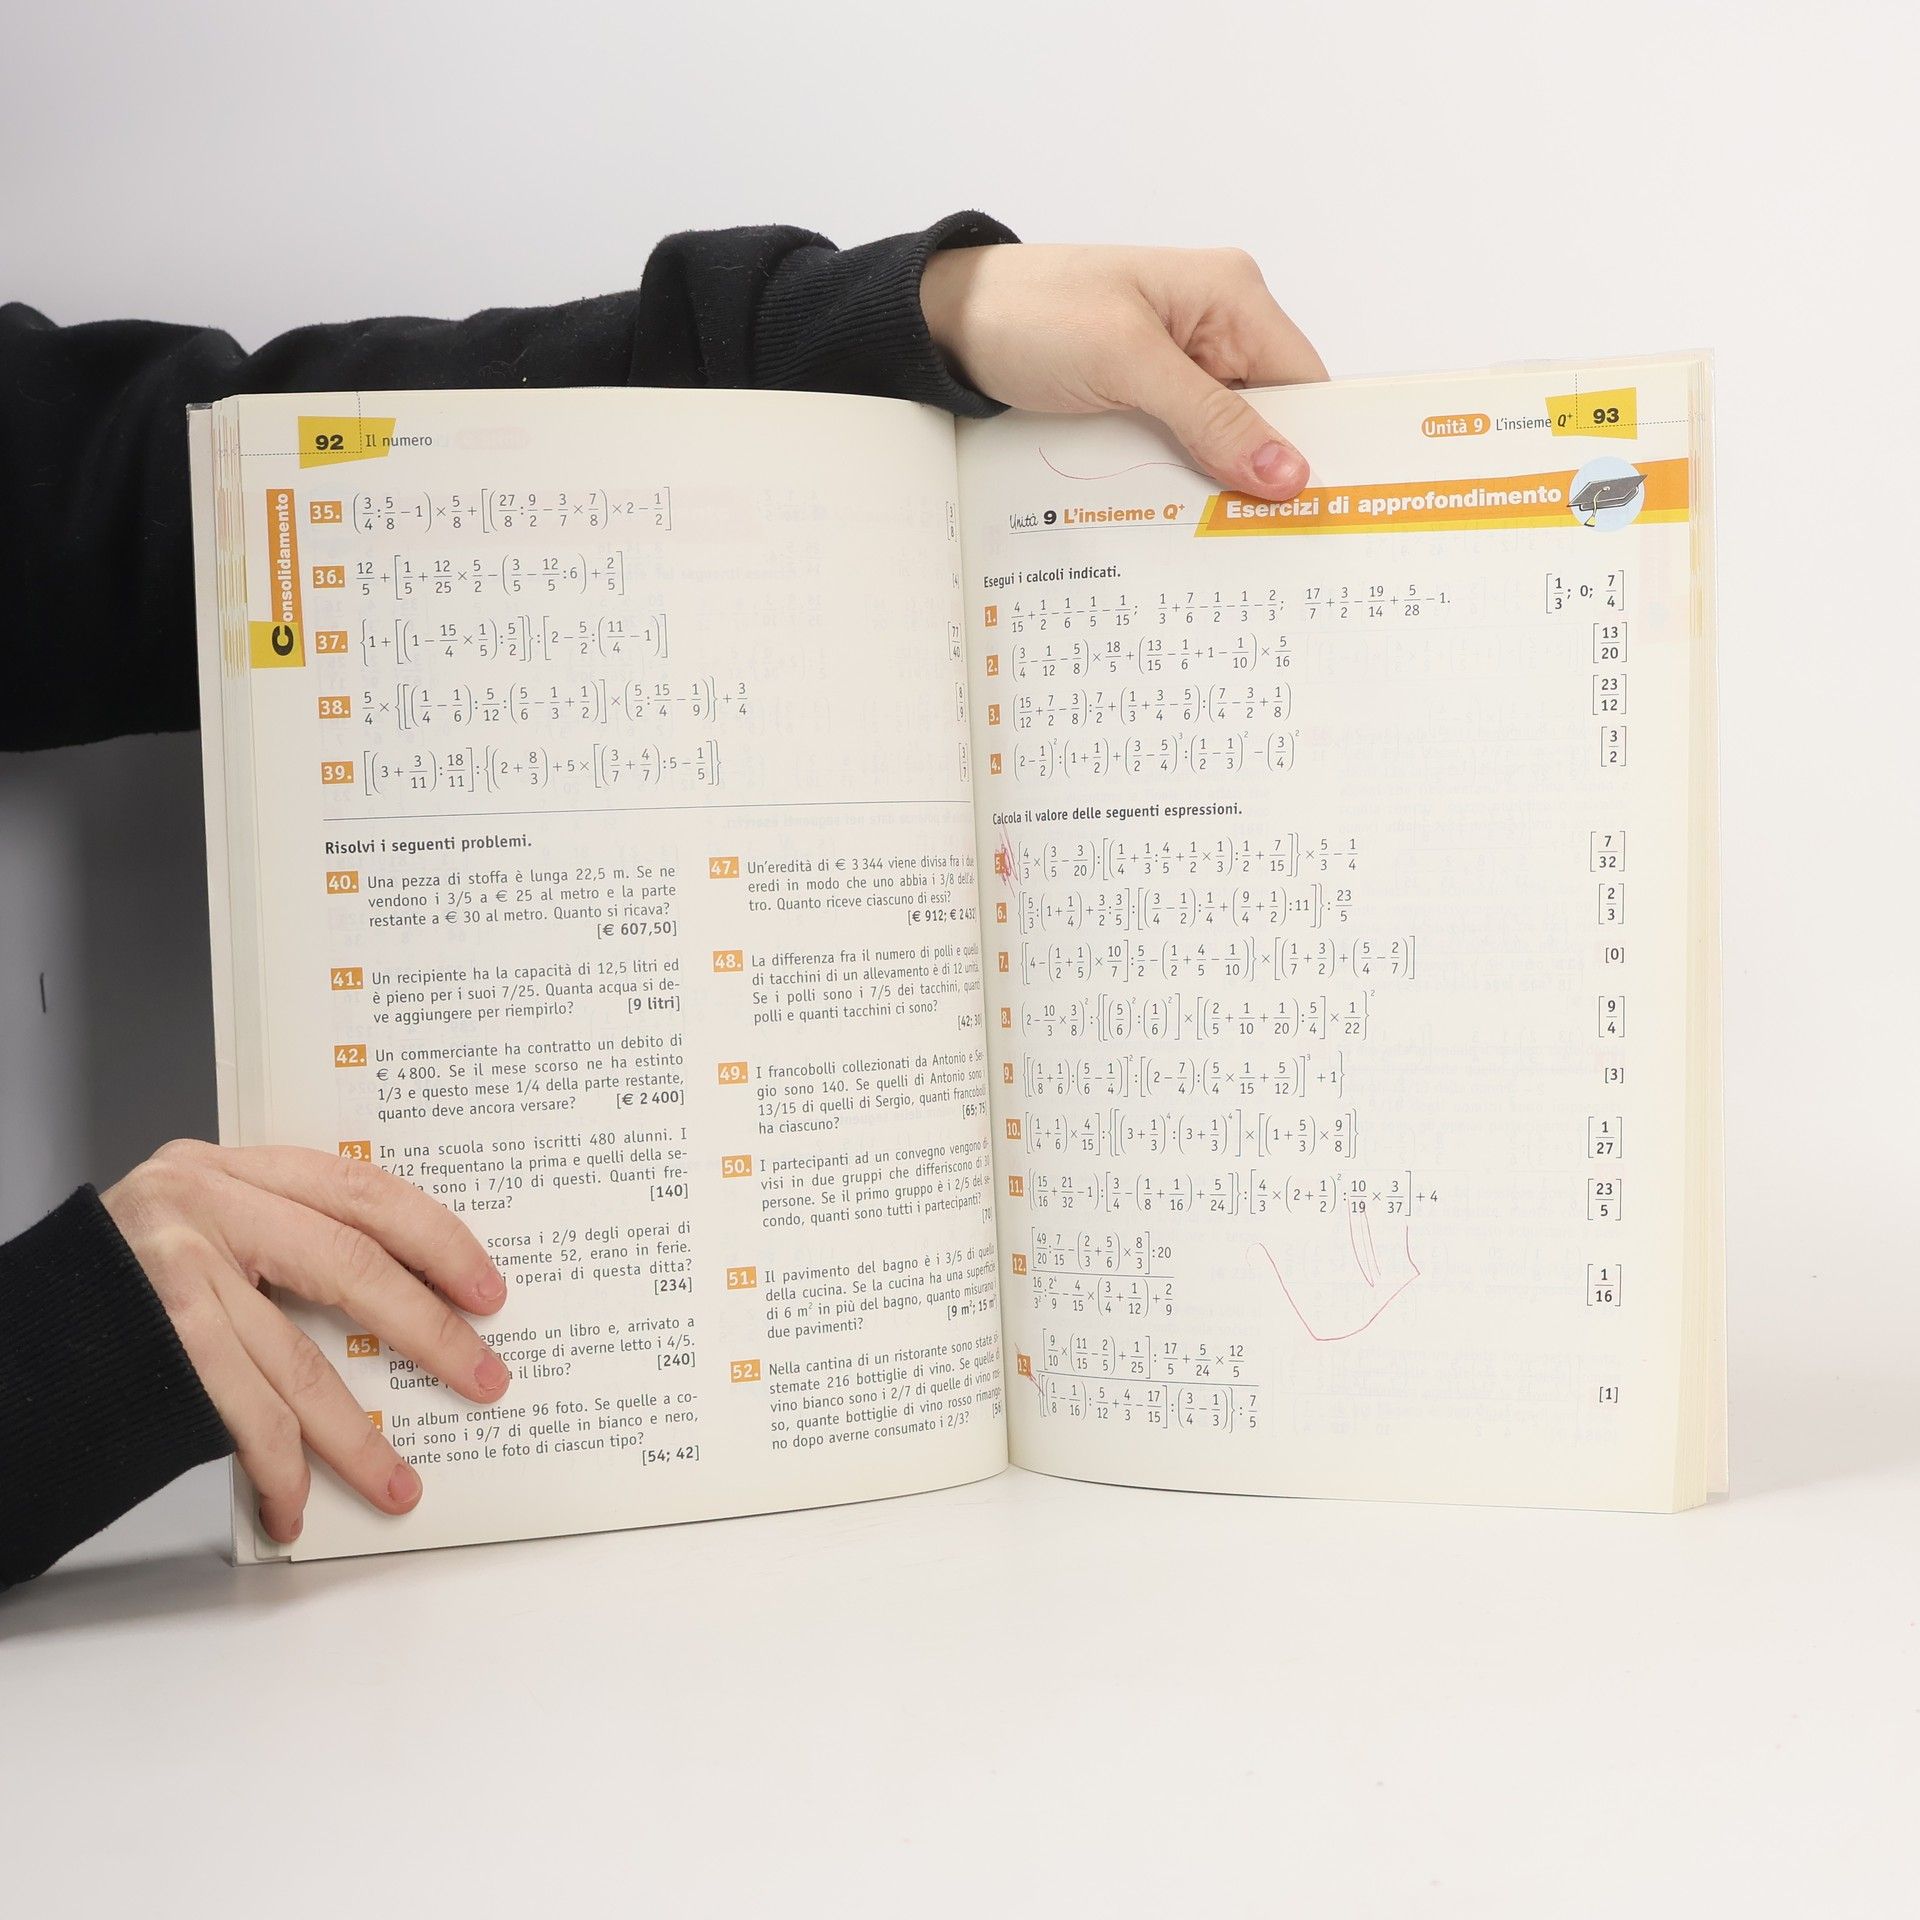 92 Il numero
Consolidamento
35. (3/4 : 5/8 − 1) × 5/8 + [(27/8 : 9/2 − 3/7 × 7/8) × 2 − 1/2] [3/8]
36. 12/5 + [1/5 + 12/25 × 5/2 − (3/5 − 12/5 : 6) + 2/5] [4]
37. {1 + [(1 − 15/4 × 1/5) : 5/2]} : [2 − 5/2 : (11/4 − 1)] [77/40]
38. 5/4 × {[(1/4 − 1/6) : 5/12 : (5/6 − 1/3 + 1/2)] × (5/2 : 15/4 − 1/9)} + 3/4 [8/9]
39. [(3 + 3/11) : 18/11] : {(2 + 8/3) + 5 × [(3/7 + 4/7) : 5 − 1/5]} [3/7]
Risolvi i seguenti problemi.
40. Una pezza di stoffa è lunga 22,5 m. Se ne
vendono i 3/5 a € 25 al metro e la parte
restante a € 30 al metro. Quanto si ricava?
[€ 607,50]
41. Un recipiente ha la capacità di 12,5 litri ed
è pieno per i suoi 7/25. Quanta acqua si de-
ve aggiungere per riempirlo? [9 litri]
42. Un commerciante ha contratto un debito di
€ 4 800. Se il mese scorso ne ha estinto
1/3 e questo mese 1/4 della parte restante,
quanto deve ancora versare? [€ 2 400]
43. In una scuola sono iscritti 480 alunni. I
5/12 frequentano la prima e quelli della se-
sono i 7/10 di questi. Quanti fre-
la terza? [140]
scorsa i 2/9 degli operai di
52, erano in ferie.
operai di questa ditta?
[234]
45. un libro e, arrivato a
di averne letto i 4/5.
Quante il libro? [240]
Un album contiene 96 foto. Se quelle a co-
lori sono i 9/7 di quelle in bianco e nero,
sono le foto di ciascun tipo?
[54; 42]
47. Un'eredità di € 3 344 viene divisa fra i due
eredi in modo che uno abbia i 3/8 dell'al-
tro. Quanto riceve ciascuno di essi?
[€ 912; € 2 432]
48. La differenza fra il numero di polli e quello
di tacchini di un allevamento è di 12 unità.
Se i polli sono i 7/5 dei tacchini, quanti
polli e quanti tacchini ci sono?
[42; 30]
49. I francobolli collezionati da Antonio e Ser-
gio sono 140. Se quelli di Antonio sono i
13/15 di quelli di Sergio, quanti francobolli
ha ciascuno? [65; 75]
50. I partecipanti ad un convegno vengono di-
visi in due gruppi che differiscono di 30
persone. Se il primo gruppo è i 2/5 del se-
condo, quanti sono tutti i partecipanti?
[70]
51. Il pavimento del bagno è i 3/5 di quello
della cucina. Se la cucina ha una superficie
di 6 m² in più del bagno, quanto misurano i
due pavimenti? [9 m²; 15 m²]
52. Nella cantina di un ristorante sono state si-
stemate 216 bottiglie di vino. Se quelle di
vino bianco sono i 2/7 di quelle di vino ros-
so, quante bottiglie di vino rosso rimango-
no dopo averne consumato i 2/3? [56]
Unità 9 L'insieme Q⁺ 93
Unità 9 L'insieme Q⁺ Esercizi di approfondimento
Esegui i calcoli indicati.
1. 4/15 + 1/2 − 1/6 − 1/5 − 1/15; 1/3 + 7/6 − 1/2 − 1/3 − 2/3; 17/7 + 3/2 − 19/14 + 5/28 − 1. [1/3; 0; 7/4]
2. (3/4 − 1/12 − 5/8) × 18/5 + (13/15 − 1/6 + 1 − 1/10) × 5/16 [13/20]
3. (15/12 + 7/2 − 3/8) : 7/2 + (1/3 + 3/4 − 5/6) : (7/4 − 3/2 + 1/8) [23/12]
4. (2 − 1/2)² : (1 + 1/2) + (3/2 − 5/4)³ : (1/2 − 1/3)² − (3/4)² [3/2]
Calcola il valore delle seguenti espressioni.
5. {4/3 × (3/5 − 3/20) : [(1/4 + 1/3 : 4/5 + 1/2 × 1/3) : 1/2 + 7/15]} × 5/3 − 1/4 [7/32]
6. {[5/3 : (1 + 1/4) + 3/2 : 3/5] : [(3/4 − 1/2) : 1/4 + (9/4 + 1/2) : 11]} : 23/5 [2/3]
7. {[4 − (1/2 + 1/5) × 10/7] : 5/2 − (1/2 + 4/5 − 1/10)} × [(1/7 + 3/2) + (5/4 − 2/7)] [0]
8. (2 − 10/3 × 3/8)² : {[(5/6)² : (1/6)²] × [(2/5 + 1/10 + 1/20) : 5/4] × 1/22}² [9/4]
9. {[(1/8 + 1/6) : (5/6 − 1/4)]² : [(2 − 7/4) : (5/4 × 1/15 + 5/12)]³ + 1} [3]
10. [(1/4 + 1/6) × 4/15] : {[(3 + 1/3)⁴ : (3 + 1/3)⁴] × [(1 + 5/3) × 9/8]} [1/27]
11. {(15/16 + 21/32 − 1) : [3/4 − (1/8 + 1/16) + 5/24]} : [4/3 × (2 + 1/2)² : 10/19 × 3/37] + 4 [23/5]
12. [49/20 : 7/15 − (2/3 + 5/6) × 8/3] : 20
16/3² : 2⁴/9 − 4/15 × (3/4 + 1/12) + 2/9 [1/16]
13. [9/10 × (11/15 − 2/5) + 1/25] : 17/5 + 5/24 × 12/5
{[(1/8 − 1/16) : 5/12 + 4/3 − 17/15] : (3/4 − 1/3)} : 7/5 [1]